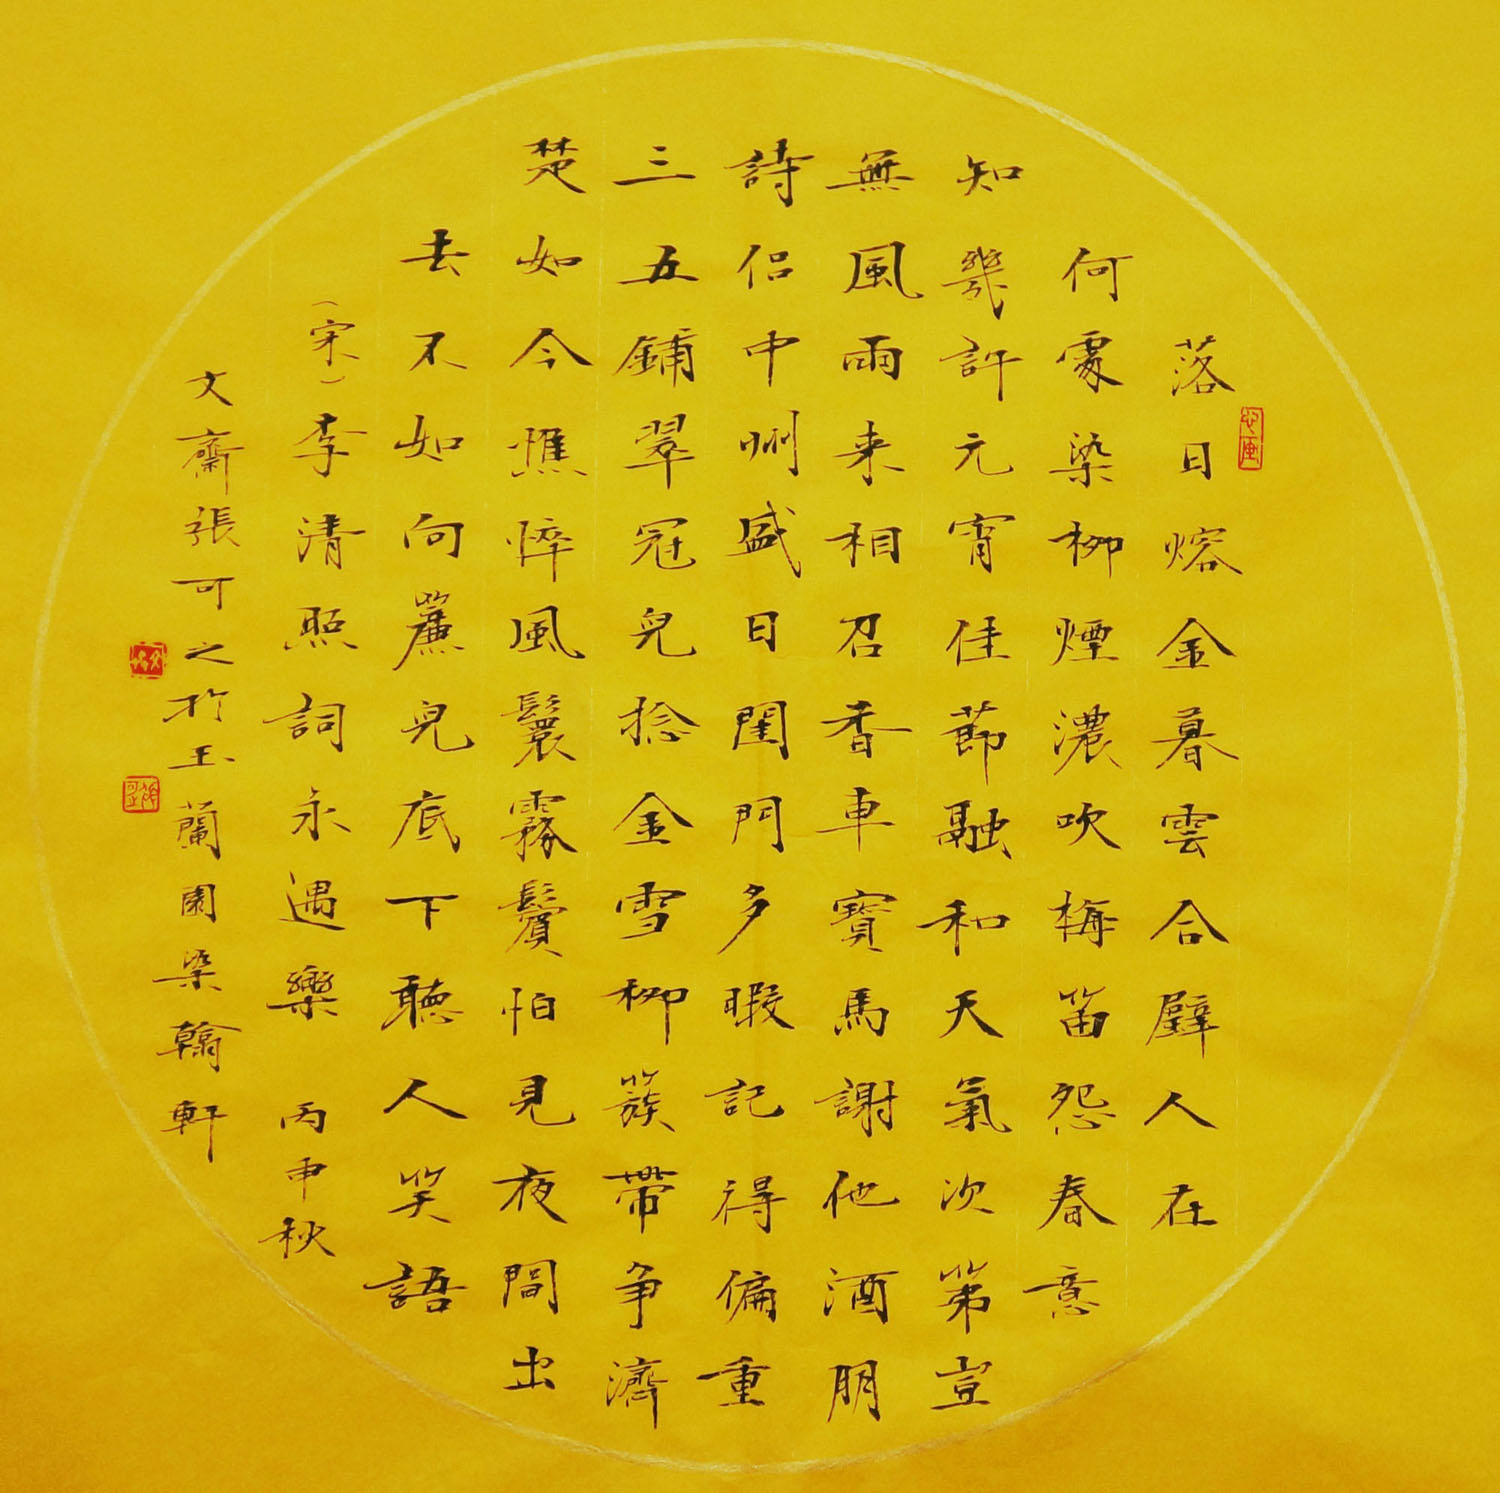 落日熔金暮雲合璧人在
何處染柳煙濃吹梅笛怨春意
知幾許元宵佳節融和天氣次第豈
無風雨来相召香車寶馬謝他酒朋
詩侣中州盛日閨門多暇記得偏重
三五鋪翠冠兒捻金雪柳簇帶争濟
楚如今憔悴風鬟霧鬢怕見夜間出
去不如向簾兒底下聽人笑語
(宋)李清照詞永遇樂 丙申秋
文齋張可之於玉蘭園染翰軒